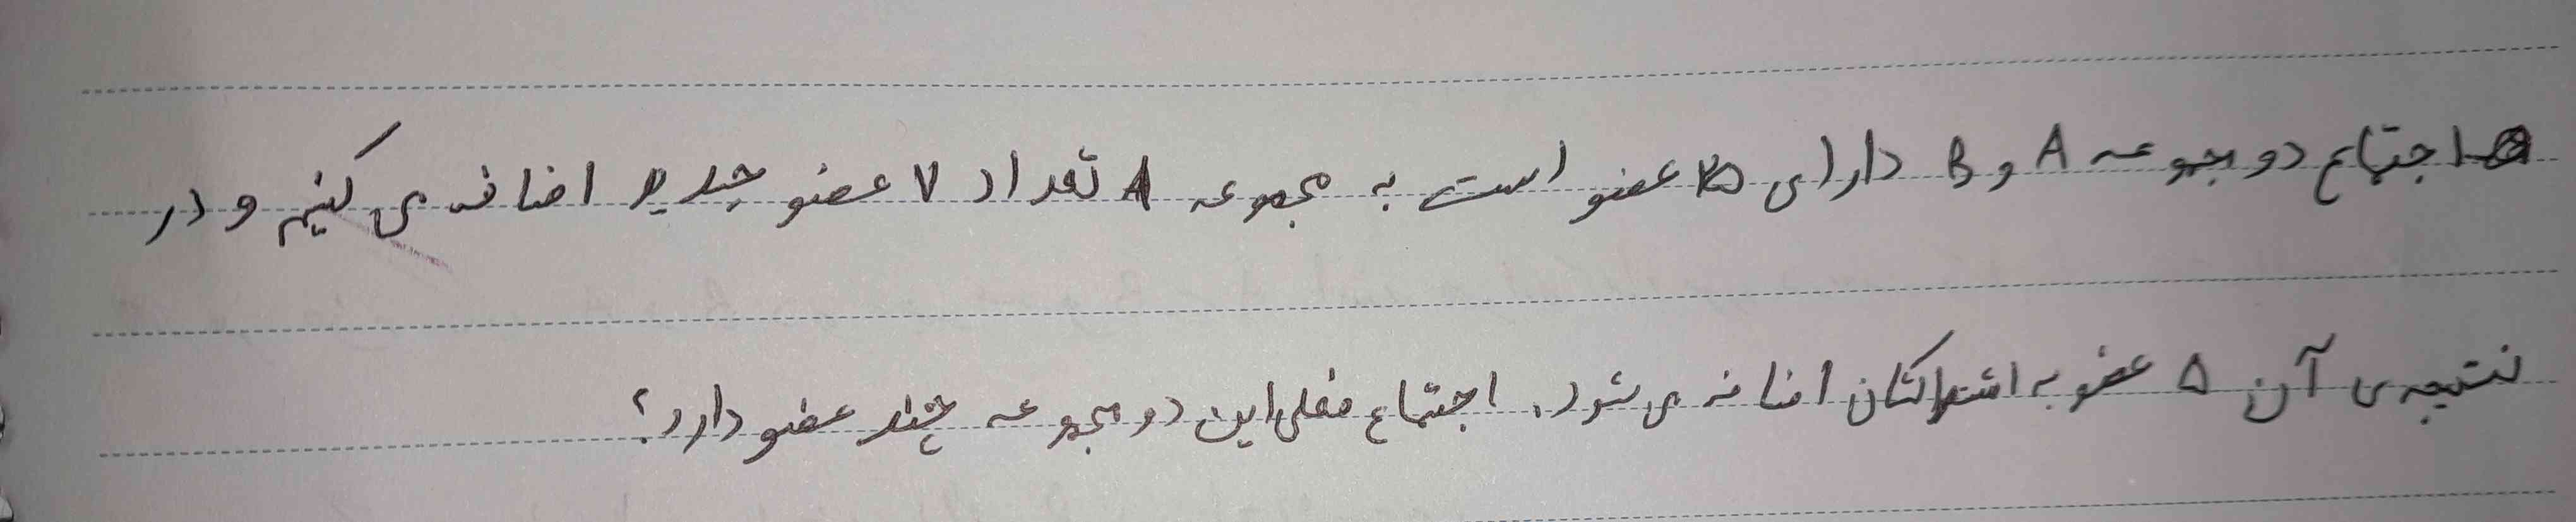 اجتماع دو مجموعه A و B دارای ۲۵ عضو است به مجموعه A تعداد ۷ عضو جدید اضافه می کنیم و در
نتیجه ی آن ۵ عضو به اشتراکشان اضافه می شود. اجتماع فعلی این دو مجموعه چند عضو دارد؟